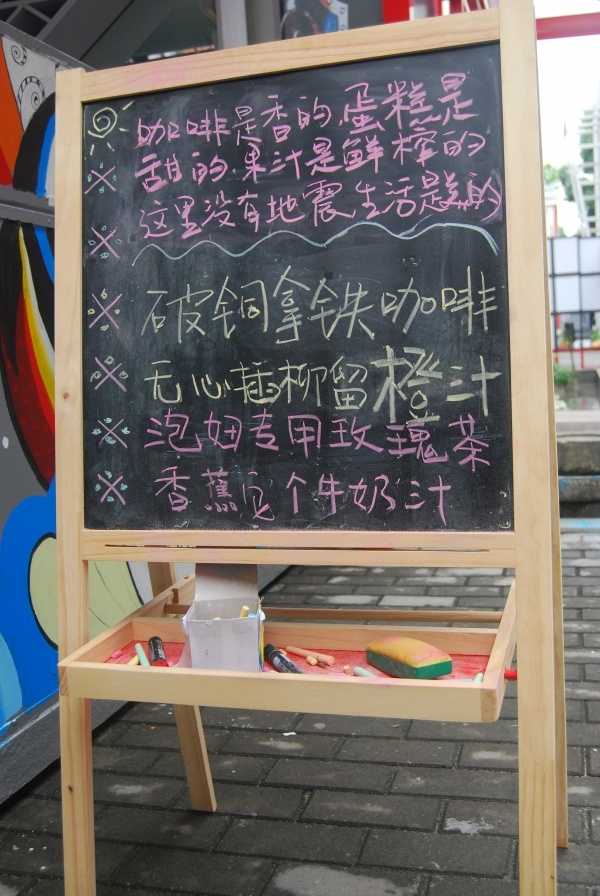 咖啡是香的蛋糕是
甜的果汁是鲜榨的
这里没有地震生活是美的
破铜拿铁咖啡
无心插柳留橙汁
泡妞专用玫瑰茶
香蕉个牛奶汁